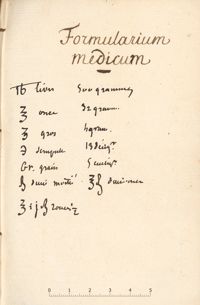 Formularium
medicum
℔ livre 500 grammes
℥ once 32 gram.
ʒ gros 4 gram.
℈ scrupule 13 décigr.
Gr. grain 5 centigr.
ß demi ℥ß demi-once
℥ i j ß
0 1 2 3 4 5